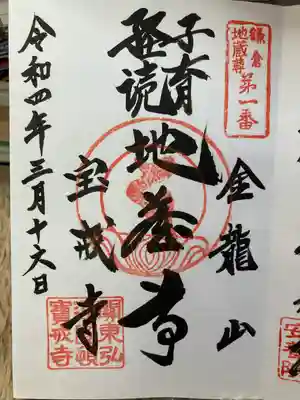 鎌倉
地蔵尊
第一番
金龍山
子育
経読
地蔵尊
宝戒寺
令和四年三月十六日
寶戒寺